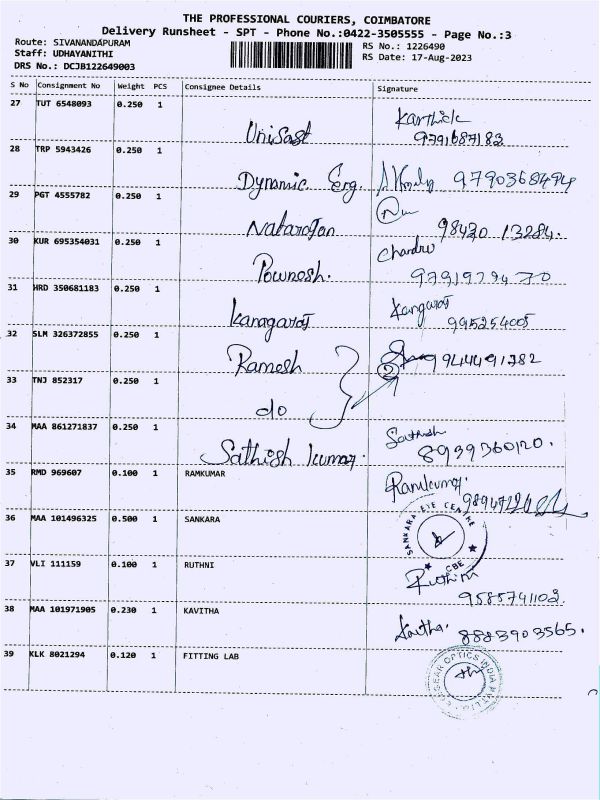 THE PROFESSIONAL COURIERS, COIMBATORE
Delivery Runsheet - SPT - Phone No.:0422-3505555 - Page No.:3
Route: SIVANANDAPURAM
RS No.: 1226490
Staff: UDHAYANITHI
RS Date: 17-Aug-2023
DRS No.: DCJB122649003
S No Consignment No Weight PCS Consignee Details Signature
27 TUT 6548093 0.250 1 Karthick
Unisast 9791687183
28 TRP 5943426 0.250 1
Dynamic Erg. 9790368494
29 PGT 4555782 0.250 1
Natarajan 98430 13284.
30 KUR 695354031 0.250 1 Chandru
Pownesh.
31 HRD 350681183 0.250 1 Kangaraj
Kanagaraj 995254005
32 SLM 326372855 0.250 1
Ramesh 2 9444491382
33 TNJ 852317 0.250 1
do
34 MAA 861271837 0.250 1 Sathish
Sathish kumar. 8939360120.
35 RMD 969607 0.100 1 RAMKUMAR Ramkumar.
36 MAA 101496325 0.500 1 SANKARA SANKARA EYE CENTRE CBE
37 VLI 111159 0.100 1 RUTHNI Ruthini
9585741102.
38 MAA 101971905 0.230 1 KAVITHA Kavitha.
8883903565.
39 KLK 8021294 0.120 1 FITTING LAB OPTICS INDIA PVT LTD